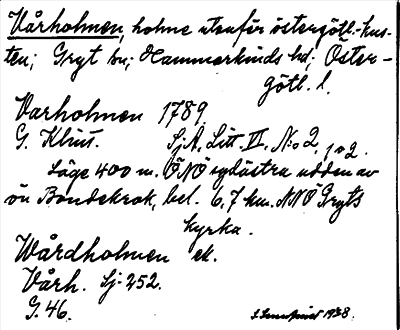 Vårholmen, holme utanför östergötl.-kus-
ten; Gryt sn; Hammarkinds hd; Öster-
götl. l.
Varholmen 1789.
G. Klint. Sj.A. Litt VI, N:o 2, 1 o 2.
Läge 400 m. ÖNÖ sydöstra udden av
ön Bondekrok, bel. 6,7 km. NNÖ Gryts
kyrka.
Wårdholmen ek.
Vårh. Sj. 252.
G. 46.
1938.